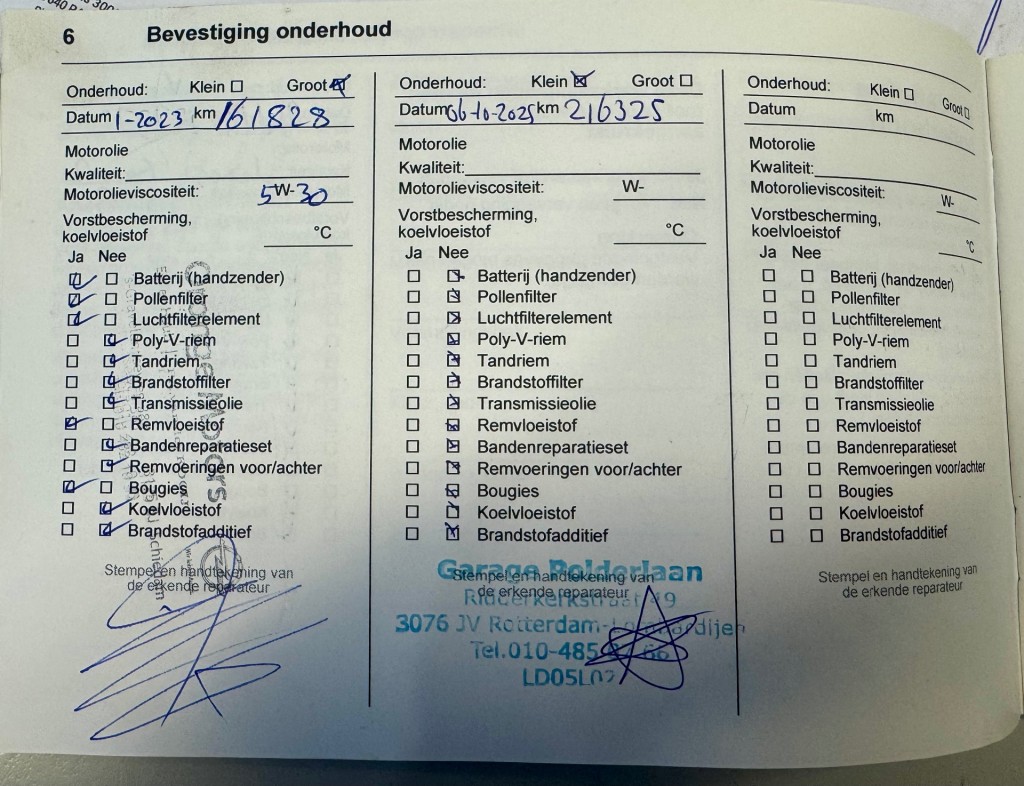 6 Bevestiging onderhoud
Onderhoud: Klein Groot
Datum 1-2023 km 161828
Motorolie
Kwaliteit:
Motorolieviscositeit: 5W-30
Vorstbescherming,
koelvloeistof °C
Ja Nee
Batterij (handzender)
Pollenfilter
Luchtfilterelement
Poly-V-riem
Tandriem
Brandstoffilter
Transmissieolie
Remvloeistof
Bandenreparatieset
Remvoeringen voor/achter
Bougies
Koelvloeistof
Brandstofadditief
Stempel en handtekening van
de erkende reparateur
Schiedam
Onderhoud: Klein Groot
Datum 06-10-2025 km 216325
Motorolie
Kwaliteit:
Motorolieviscositeit: W-
Vorstbescherming,
koelvloeistof °C
Ja Nee
Batterij (handzender)
Pollenfilter
Luchtfilterelement
Poly-V-riem
Tandriem
Brandstoffilter
Transmissieolie
Remvloeistof
Bandenreparatieset
Remvoeringen voor/achter
Bougies
Koelvloeistof
Brandstofadditief
Garage Polderlaan
Stempel en handtekening van
de erkende reparateur
3076 JV Rotterdam-
Tel.010-485
Onderhoud: Klein Groot
Datum km
Motorolie
Kwaliteit:
Motorolieviscositeit: W-
Vorstbescherming,
koelvloeistof °C
Ja Nee
Batterij (handzender)
Pollenfilter
Luchtfilterelement
Poly-V-riem
Tandriem
Brandstoffilter
Transmissieolie
Remvloeistof
Bandenreparatieset
Remvoeringen voor/achter
Bougies
Koelvloeistof
Brandstofadditief
Stempel en handtekening van
de erkende reparateur